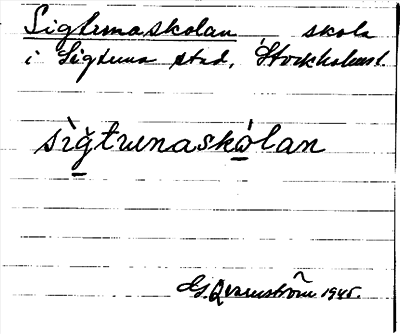 Sigtunaskolan skola
i Sigtuna stad, Stockholms l.
sìğtunaskòlan
G. Qvarnström 1945.